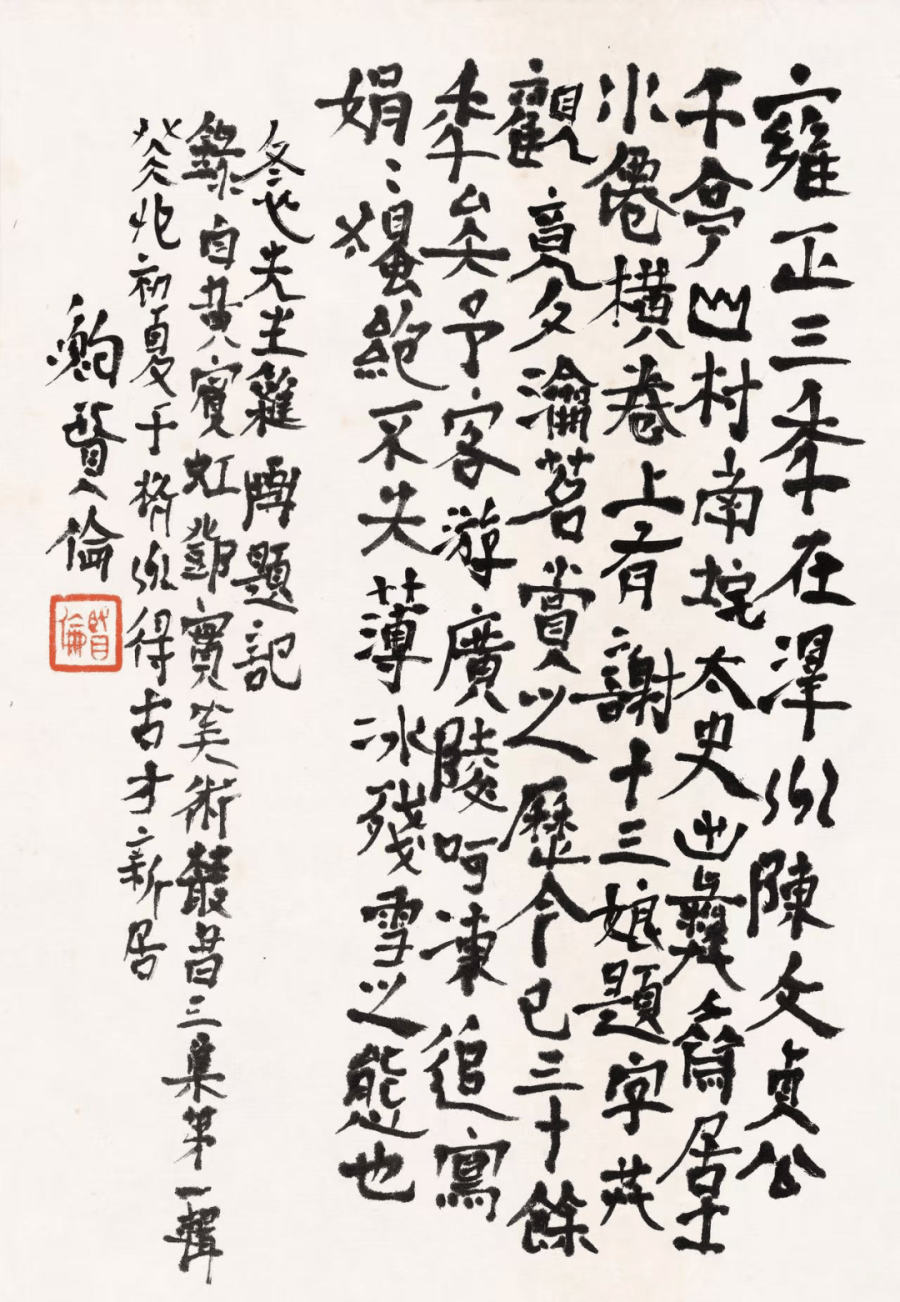 雍正三年在澤州陳文貞公
午亭山村南垞太史出彝齋居士
水僊橫卷上有謝十三娘題字共
觀竟夕瀹茗賞之歷今已三十餘
年矣予客游廣陵呵凍追寫
娟〻絕不失薄冰殘雪之態也
冬心先生雜畫題記
錄自黃賓虹鄧實美術叢書三集第一輯
癸卯初夏于州得古才新居
倫